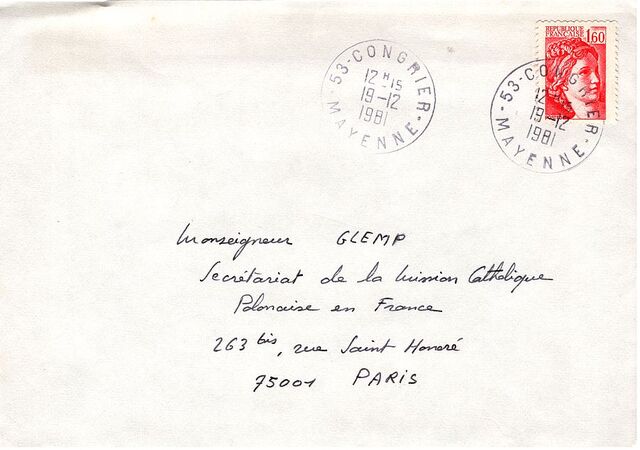 RÉPUBLIQUE
FRANÇAISE
1,60
53-CONGRIER-
12 H 15
19-12
1981
MAYENNE
53-CONGRIER-
12
19-12
1981
MAYENNE
Monseigneur GLEMP
Secrétariat de la Mission Catholique
Polonaise en France
263 bis, rue Saint Honoré
75001 PARIS